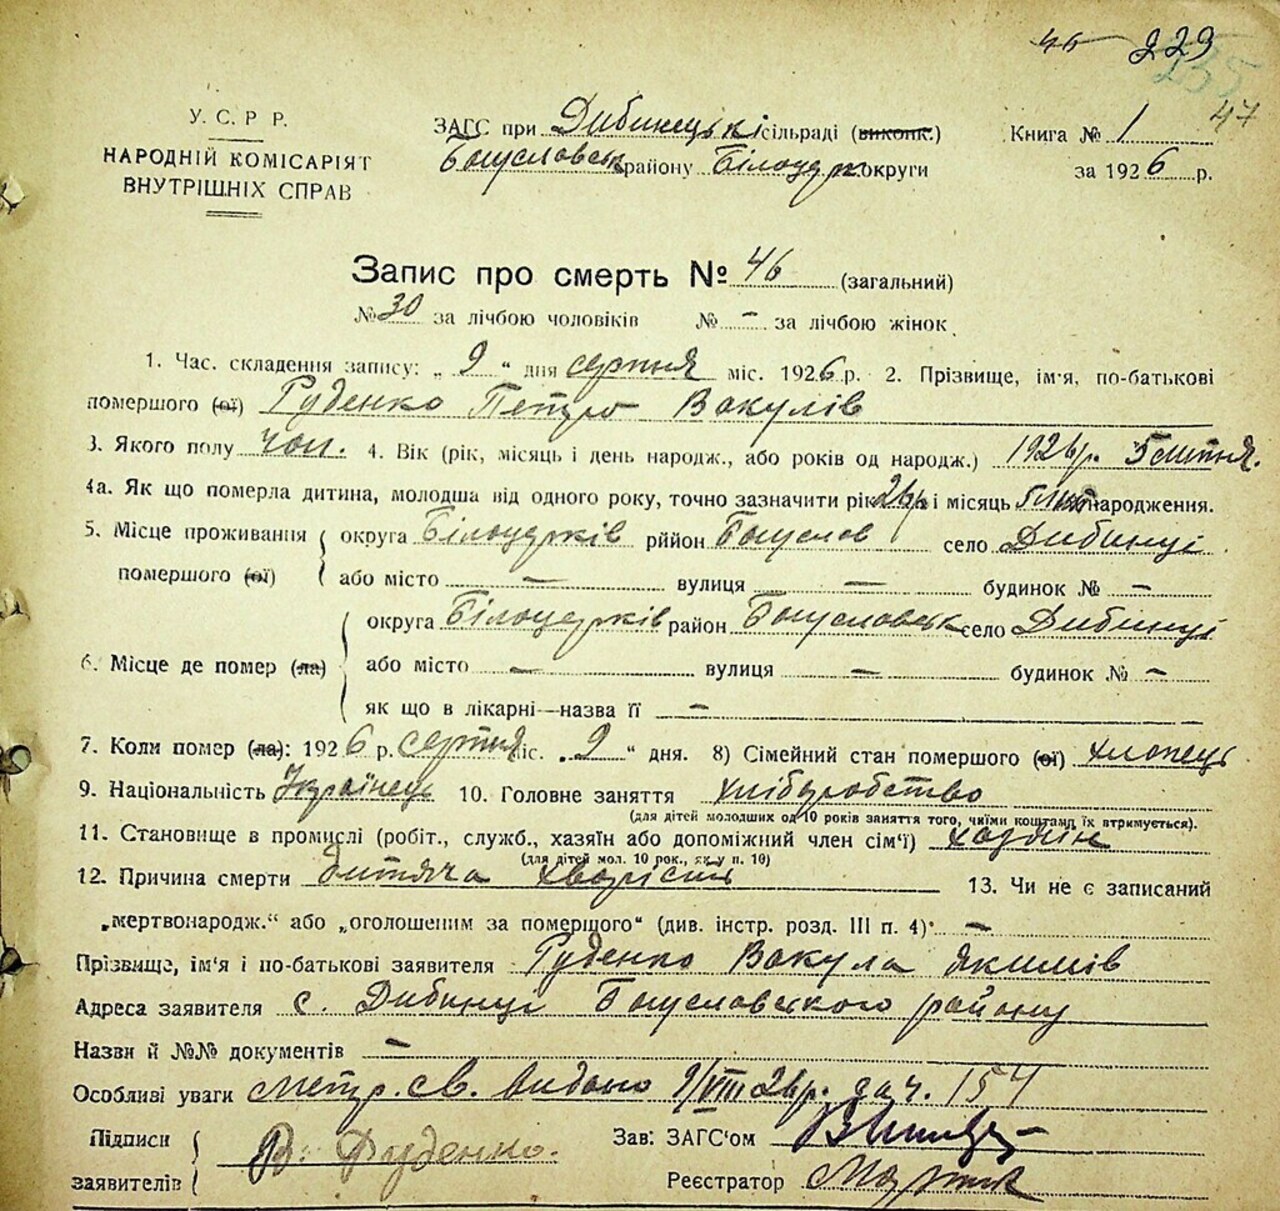 46 223
235
47
У. С. Р Р.
НАРОДНІЙ КОМІСАРІЯТ
ВНУТРІШНІХ СПРАВ
ЗАГС при Дибинецькі сільраді (виконк.)
Книга № 1
Богуславськ району Білоцерк. округи
за 1926 р.
Запис про смерть № 46 (загальний)
№ 30 за лічбою чоловіків № – за лічбою жінок.
1. Час. складення запису: „ 9 “ дня серпня міс. 1926 р. 2. Прізвище, ім'я, по-батькові
помершого (ої) Руденко Петро Вакулів
3. Якого полу чол. 4. Вік (рік, місяць і день народж., або років од народж.) 1926р. 5 липня.
4а. Як що померла дитина, молодша від одного року, точно зазначити рік 26р і місяць народження.
5. Місце проживання округа Білоцерків рййон Богуслов село Дибинці
помершого (ої) або місто — вулиця — будинок № –
округа Білоцерків район Богуславськ село Дибинці
6. Місце де помер (ла) або місто — вулиця — будинок № –
як що в лікарні—назва її –
7. Коли помер (ла): 1926 р. серпня міс. „ 9 “ дня. 8) Сімейний стан помершого (ої) хлопець
9. Національність Українець 10. Головне заняття хліборобство
(для дітей молодших од 10 років заняття того, чиїми коштами їх втримується).
11. Становище в промислі (робіт., служб., хазяїн або допоміжний член сім'ї) хазяїн
(для дітей мол. 10 рок., як у п. 10)
12. Причина смерти дитяча хворість 13. Чи не є записаний
„мертвонародж.“ або „оголошеним за помершого“ (див. інстр. розд. III п. 4) –
Прізвище, ім'я і по-батькові заявителя Руденко Вакула Якимів
Адреса заявителя с. Дибинці Богуславського району
Назви й №№ документів –
Особливі уваги метр. св. видано 9/VIII 26р. за ч. 154
Підписи
В. Руденко.
Зав: ЗАГС'ом
заявителів
Реєстратор